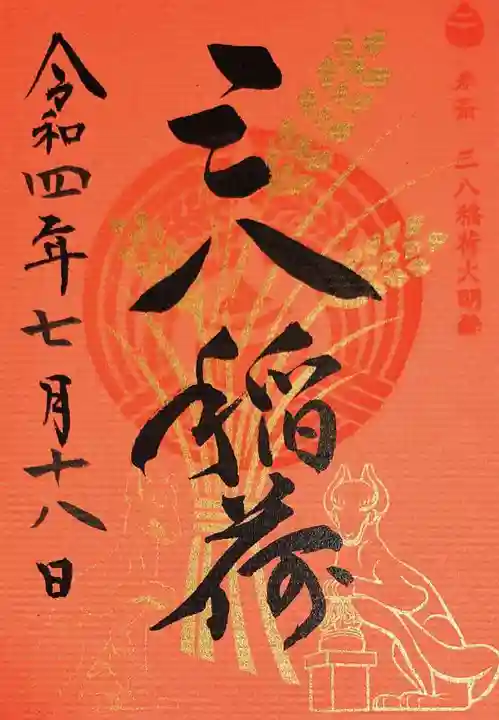 奉斎 三八稲荷大明神
三八稲荷
令和四年七月十八日